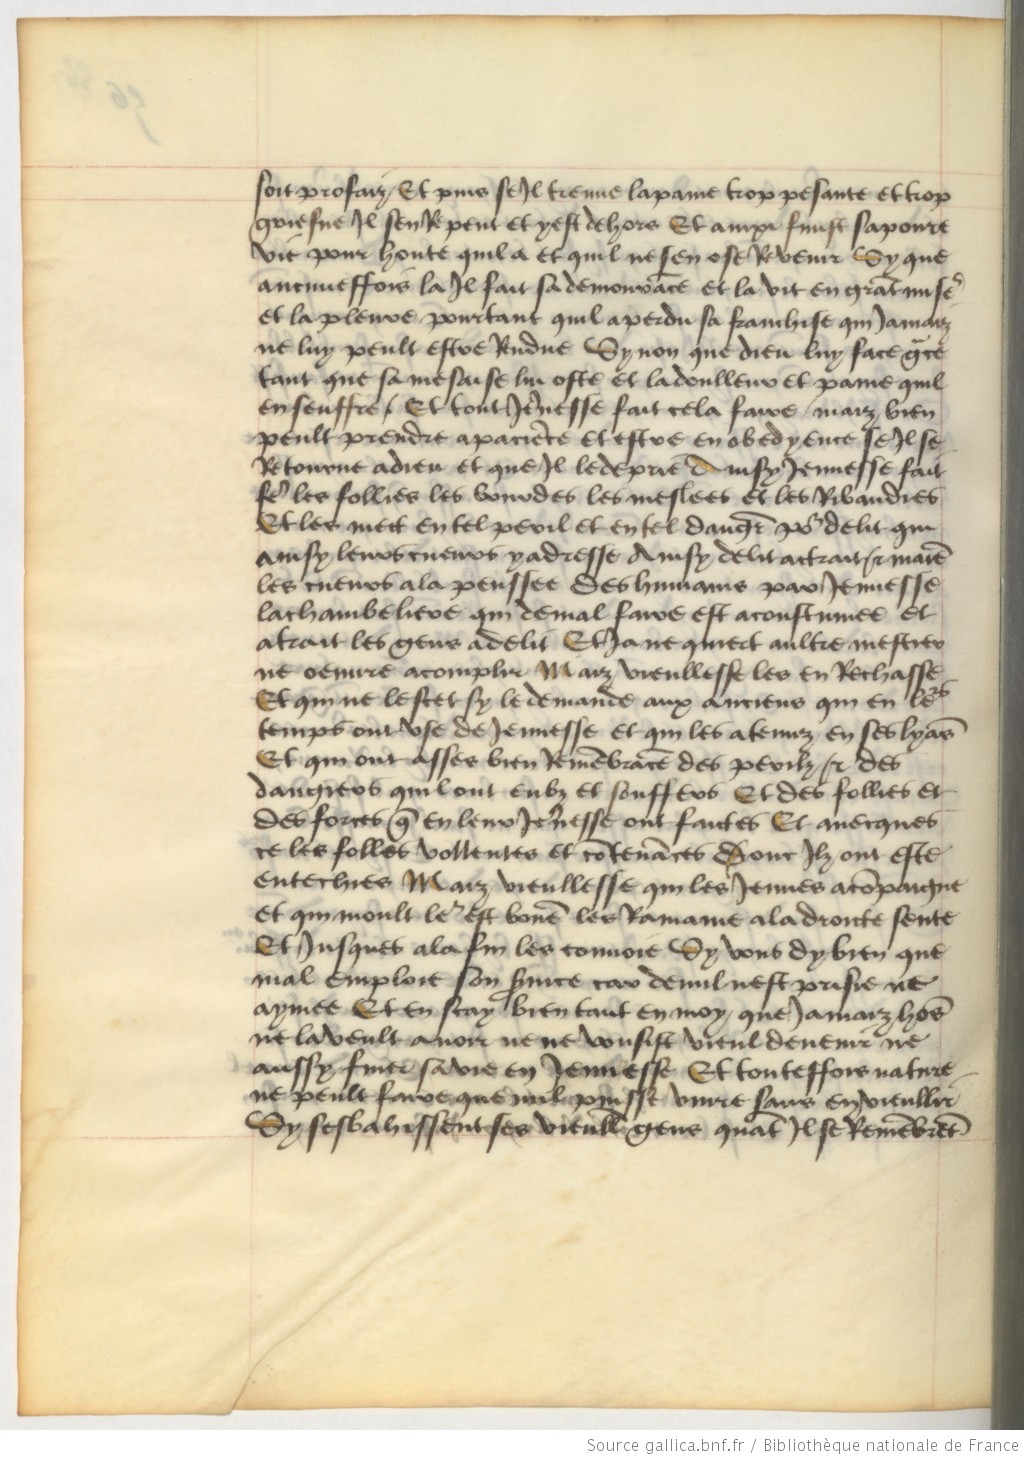 soit profaiz / Et puis se Il treuue la paine trop pesante et trop
griefue Il sen Repent et yest dehors Et ainxi finist sa poure
vie pour honte quil a et quil ne sen ose Reuenir Sy que
aucuneffois la Il fait sa demourãce et la vit en grãt mise
et la pleure pourtant quil a perdu sa franchise qui Jamaiz
ne luy peult estre Rendue Sy non que dieu luy face grẽ
tant que sa mesaise lui oste et la doulleur et paine quil
en seuffre / Et tout Jẽnesse fait cela faire / maiz bien
peult prendre apaciẽce et estre en obedyence se Il se
Retourne a dieu et que Il le deprie Ainsy Jennesse fait
fẽ les follies les bourdes les meslees et les Ribaudies
Et les mect en tel peril et en tel dangr̃ põ delit qui
ainsy leurs cueurs y adresse Ainsy delit actrait et maiẽ
les cueurs a la penssee des humains par Jennesse
la chambeliere qui de mal faire est acoustumee et
atrait les gens a delit Et Ja ne quiert aultre mestier
ne oeuure acomplir Maiz vieullesse les en Rechasse
Et qui ne le scet sy le demande aux anciens qui en lers
temps ont vse de Jennesse et qui les a tenuz en ses lyãs
Et qui ont asses bien Remẽbrãce des perilz et des
dangiers quil ont eubz et souffers Et des follies et
des forces q̃ en leur Jẽnesse ont faictes Et auecques
ce les folles vollentes et cõtenãces Donc Ilz ont este
entechies Maiz vieullesse qui les Jeunes acõpaigne
et qui moult ler est bonẽ les Ramaine a la droicte sente
Et Jusques a la fin les conuoie Sy vous dy bien que
mal emploie son s̃uice car de nul nest prisie ne
aymee Et en scay bien tant en moy que Jamaiz hõs
ne la veult auoir ne ne voulsist vieul deuenir ne
aussy finer sa vie en Jennesse Et touteffois nature
ne peult faire que nul puisse viure sans enuieullir
Sy sesbahissent ses vieulles gens quãt Il se Remẽbrẽt
Source gallica.bnf.fr / Bibliothèque nationale de France